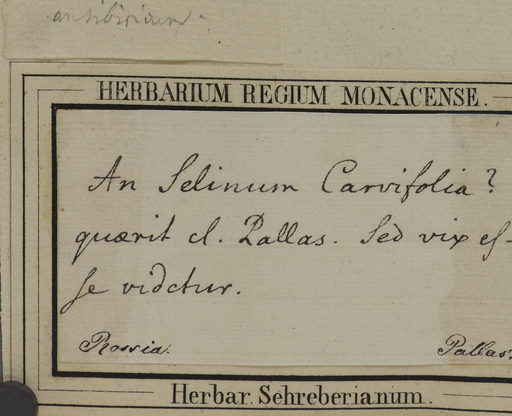 ansibiricum.
HERBARIUM REGIUM MONACENSE.
An Selinum Carvifolia?
quærit cl. Pallas. Sed vix es-
se videtur.
Rossia. Pallas.
Herbar. Schreberianum.